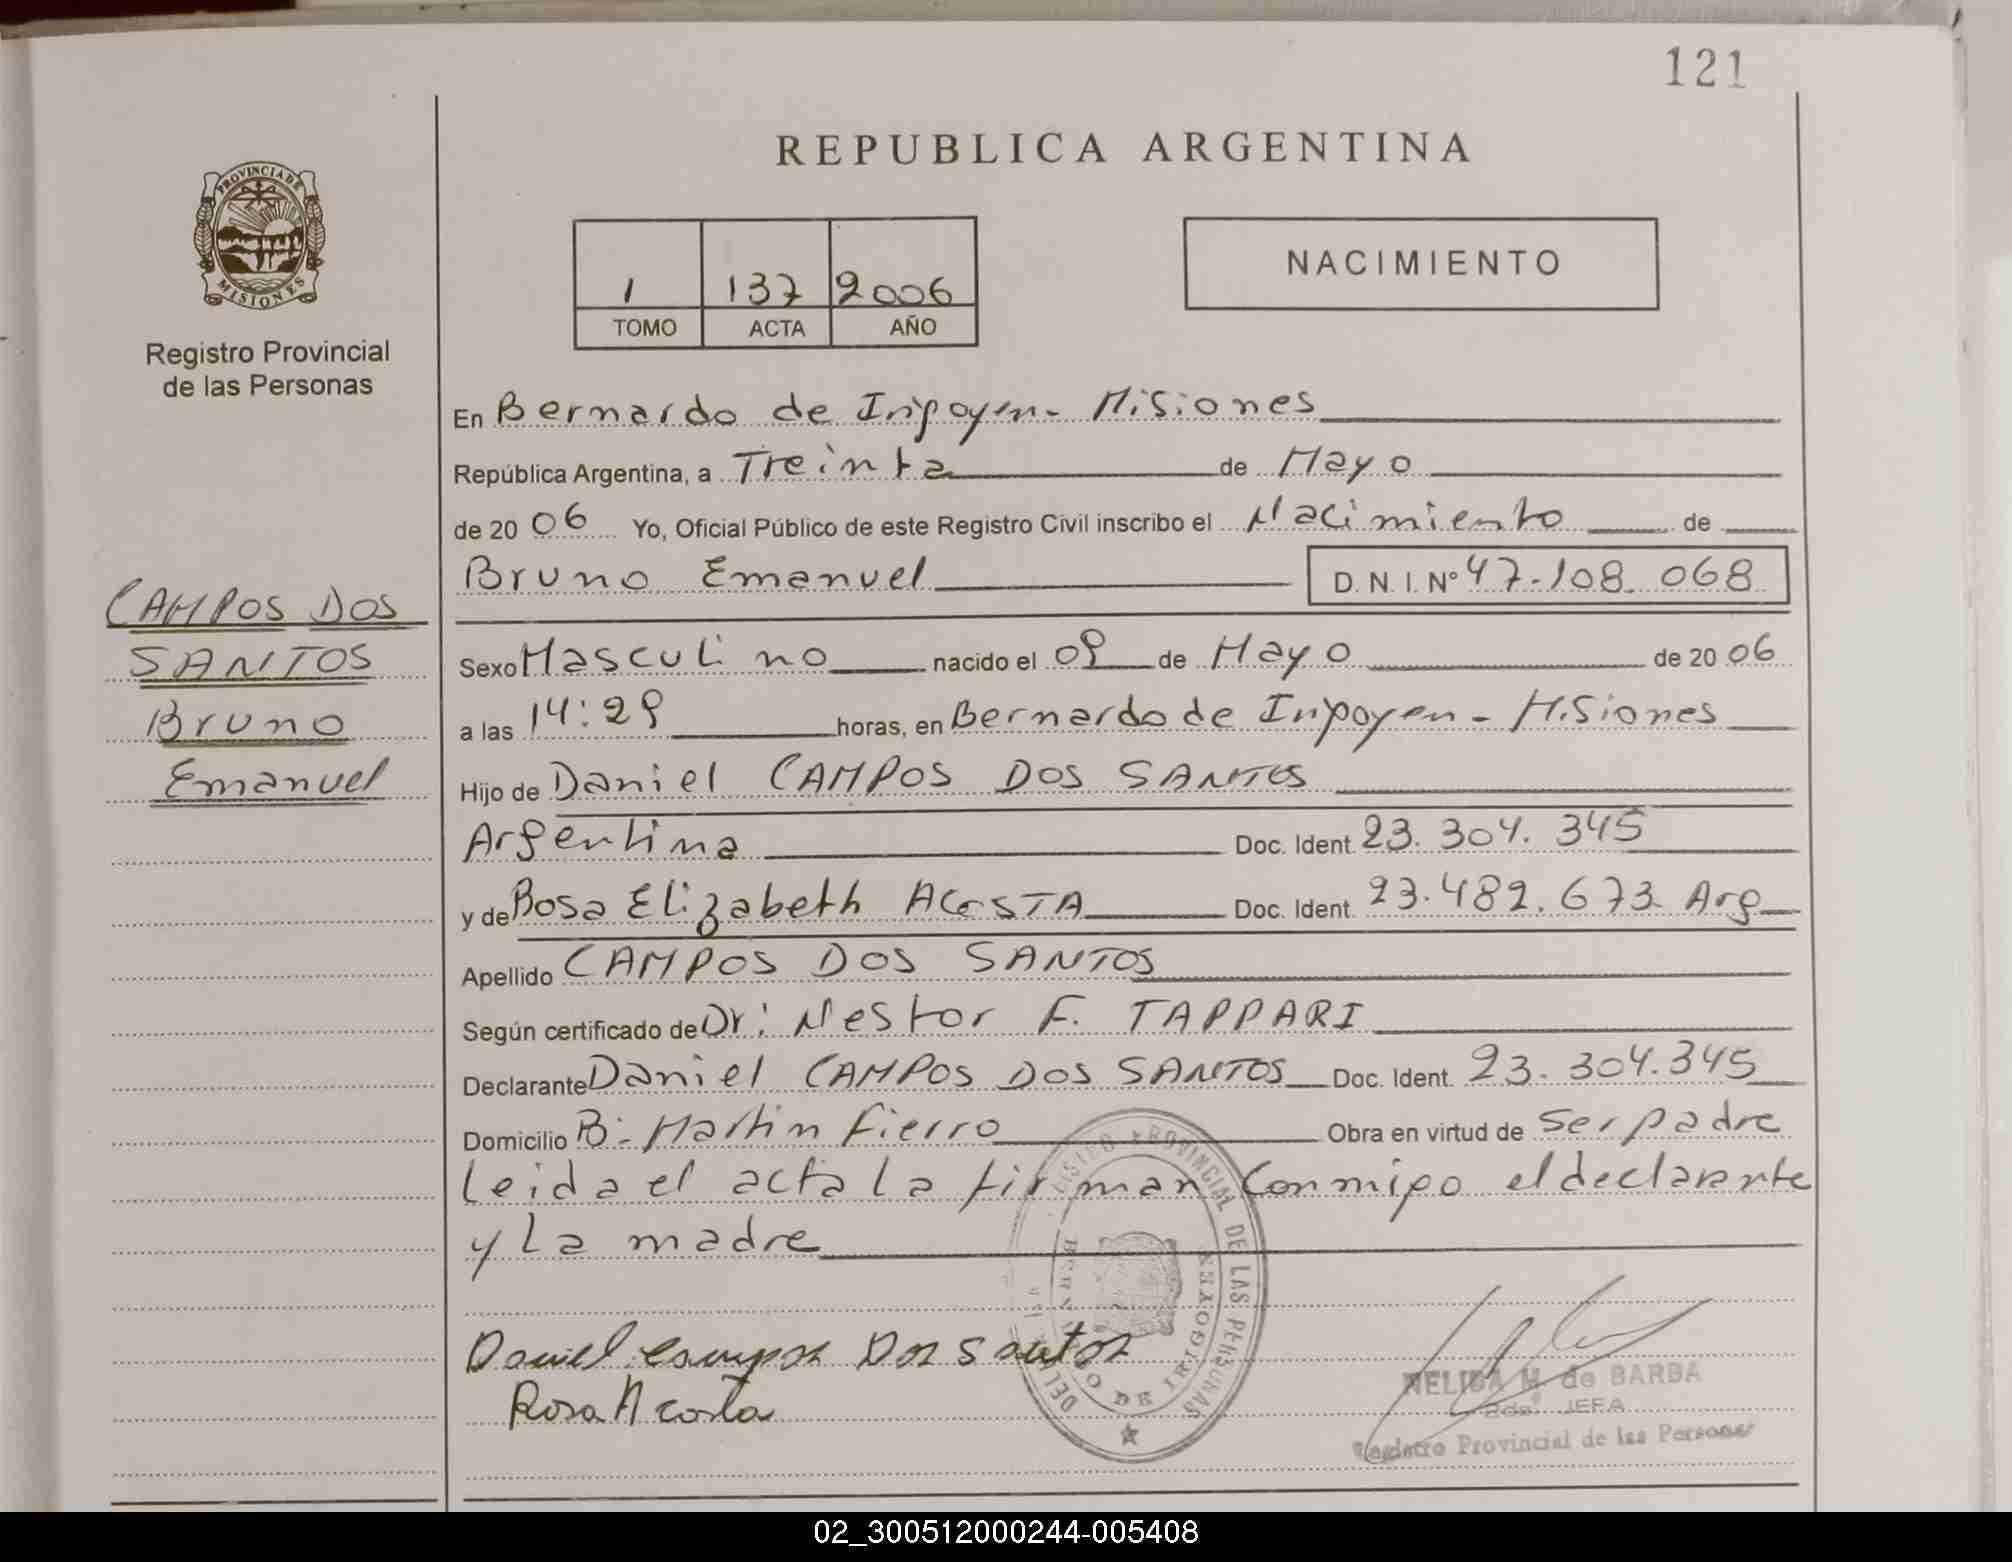 121
REPUBLICA ARGENTINA
PROVINCIA DE
MISIONES
Registro Provincial
de las Personas
1 137 2006
TOMO ACTA AÑO
NACIMIENTO
En Bernardo de Irigoyen - Misiones
República Argentina, a Treinta de Mayo
de 2006 Yo, Oficial Público de este Registro Civil inscribo el Nacimiento de
Bruno Emanuel D.N.I. Nº 47.108.068
CAMPOS DOS
SANTOS
Bruno
Emanuel
Sexo Masculino nacido el 09 de Mayo de 2006
a las 14:29 horas, en Bernardo de Irigoyen - Misiones
Hijo de Daniel CAMPOS DOS SANTOS
Argentina Doc. Ident. 23.304.345
y de Rosa Elizabeth ACOSTA Doc. Ident. 23.482.673 Arg
Apellido CAMPOS DOS SANTOS
Según certificado de Dr: Nestor F. TAPPARI
Declarante Daniel CAMPOS DOS SANTOS Doc. Ident. 23.304.345
Domicilio B: Martin Fierro Obra en virtud de ser padre
Leida el acta la firman conmigo el declarante
y la madre
Daniel campos Dos santos
Rosa Acosta
PROVINCIAL DE LAS PERSONAS
DE IRIGOYEN
NELIDA M. de BARBA
2da. JEFA
Registro Provincial de las Personas
02_300512000244-005408